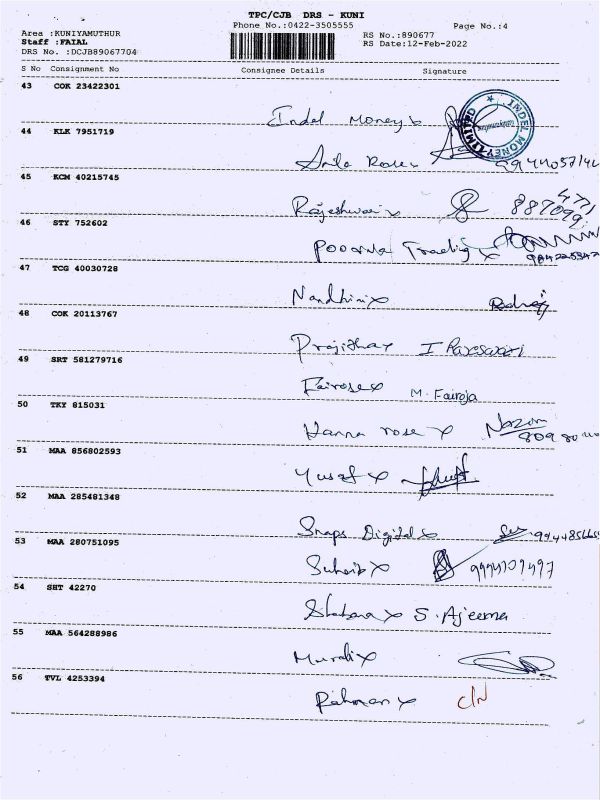 TPC/CJB DRS - KUNI
Phone No.:0422-3505555
Page No.:4
Area :KUNIYAMUTHUR
Staff :FAIAL
DRS No. :DCJB89067704
RS No.:890677
RS Date:12-Feb-2022
S No Consignment No Consignee Details Signature
43 COK 23422301
Indel Money
INDEL MONEY LIMITED
44 KLK 7951719
45 KCM 40215745
Rajeshwari
46 STY 752602
Poornia Trading
47 TCG 40030728
Nandhini
48 COK 20113767
Prajitha
49 SRT 581279716
Fairose M. Fairoja
50 TKY 815031
Hanna rose
51 MAA 856802593
Yusaf
52 MAA 285481348
Snaps Digital
53 MAA 280751095
Suhaib
54 SHT 42270
Shabana S. Ajeema
55 MAA 564288986
Murali
56 TVL 4253394
Rahman